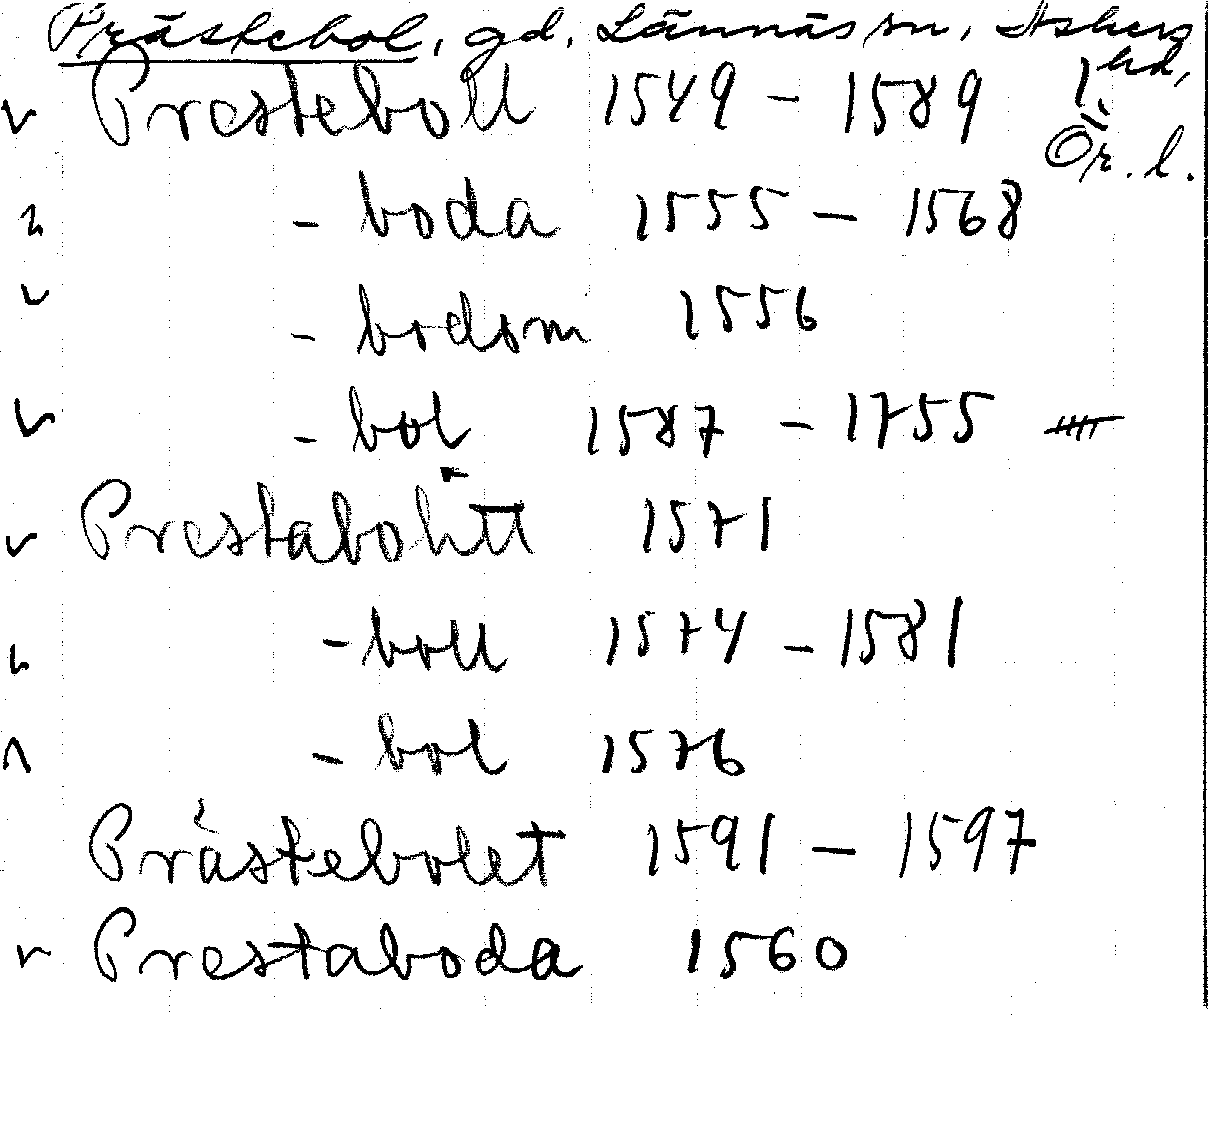 Prästebol, gd. Lännäs sn, Asbergs hd,
Ör. l.
Presteboll 1549 – 1589
– boda 1555 – 1568
– bodom 1556
– bol 1587 – 1755
Prestabohtt 1571
– boll 1574 – 1581
– bol 1576
Prästebolet 1591 – 1597
Prestaboda 1560